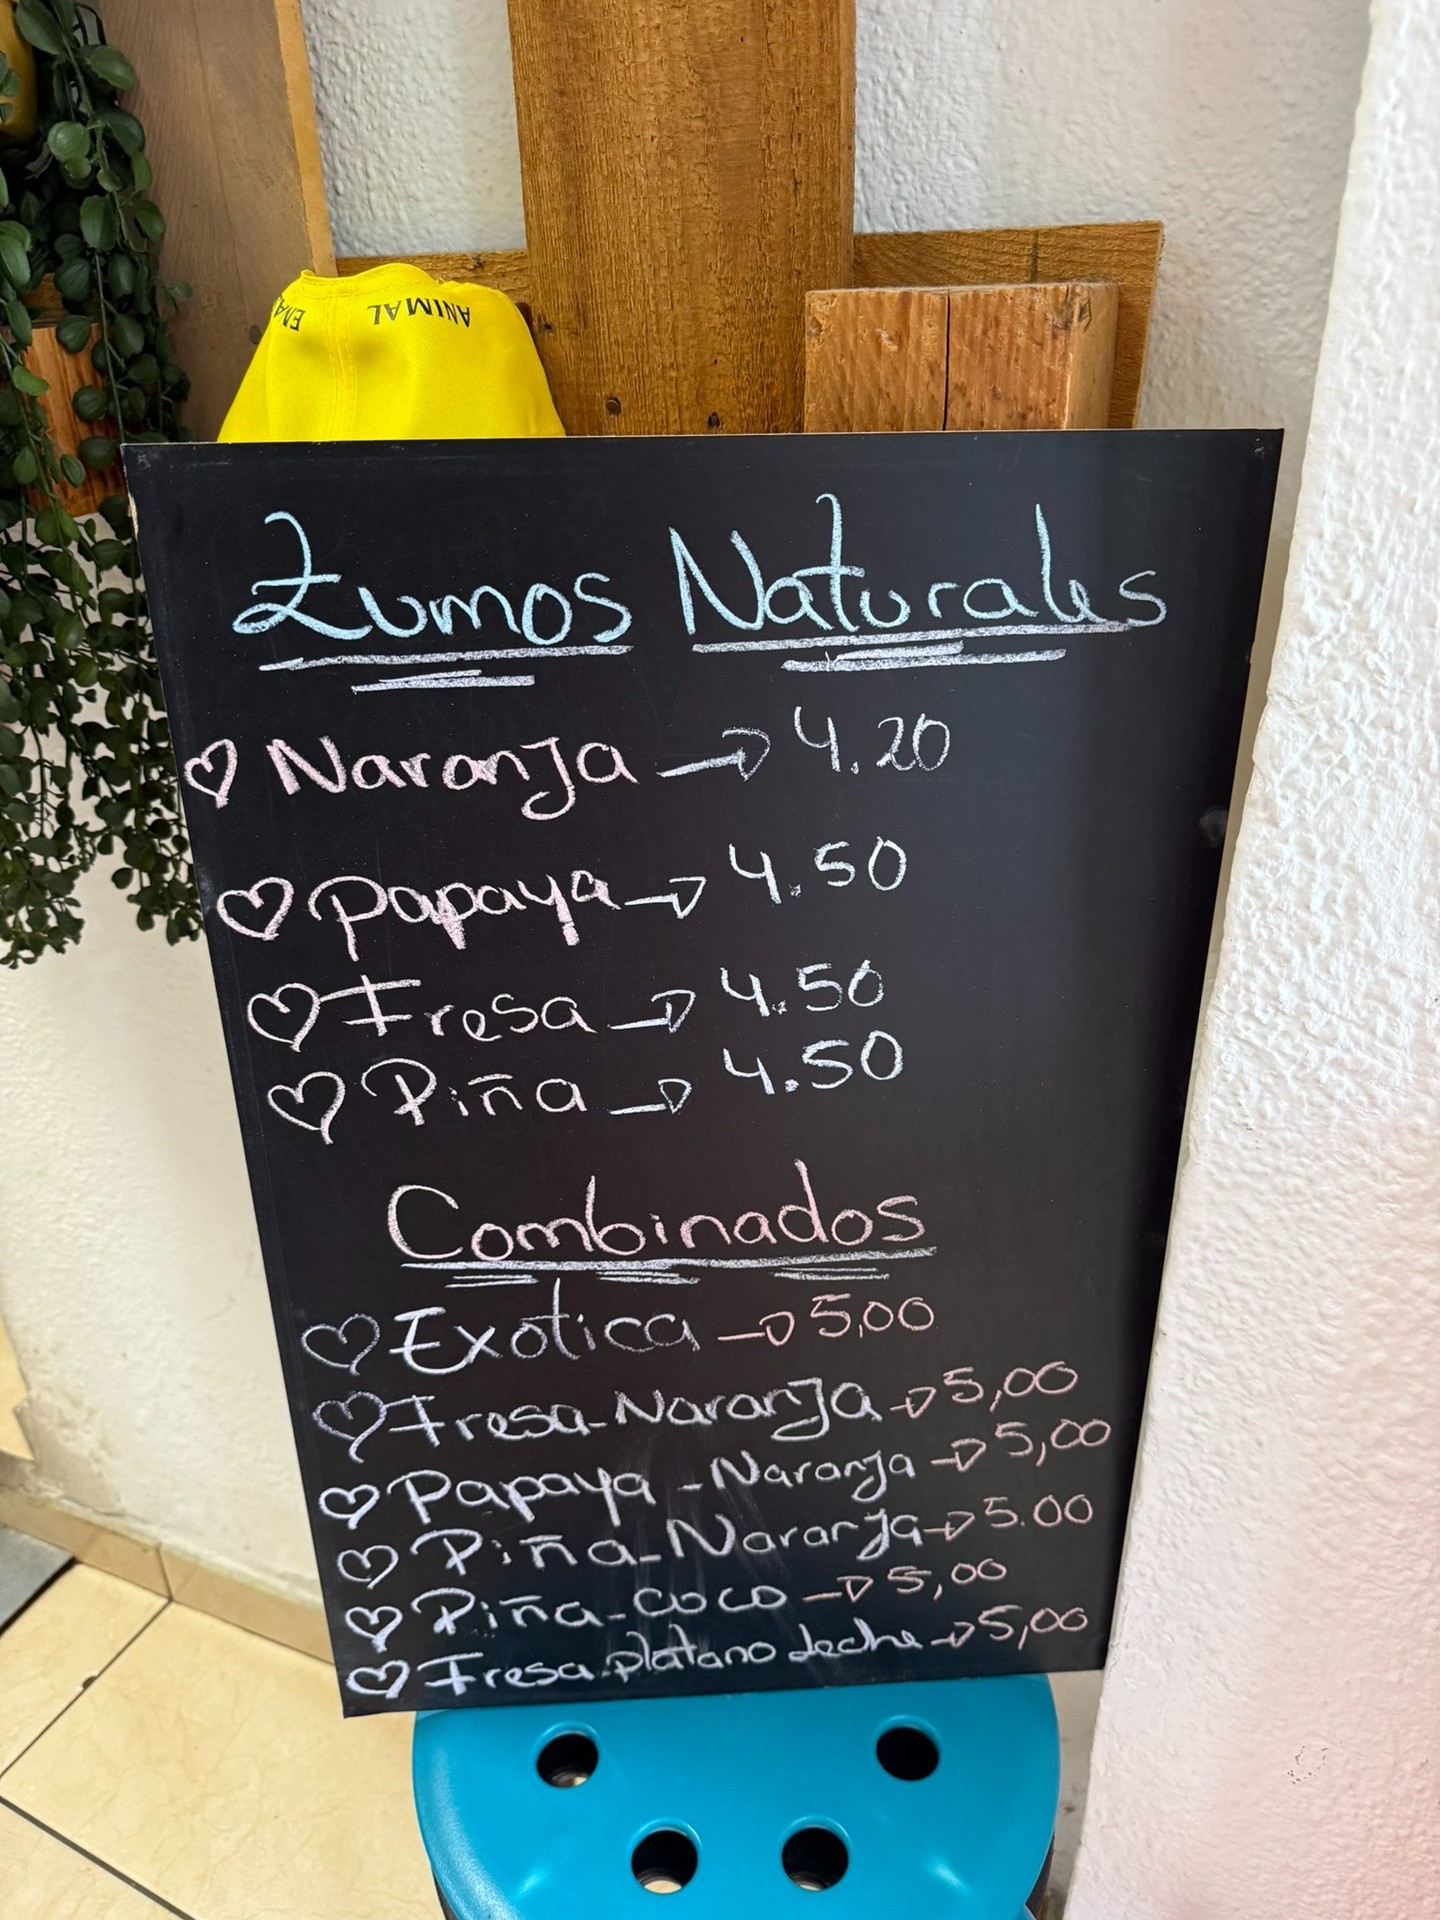 ANIMAL
Zumos Naturales
Naranja → 4.20
Papaya → 4.50
Fresa → 4.50
Piña → 4.50
Combinados
Exotica → 5,00
Fresa-Naranja → 5,00
Papaya-Naranja → 5,00
Piña-Naranja → 5.00
Piña-coco → 5,00
Fresa-platano leche → 5,00